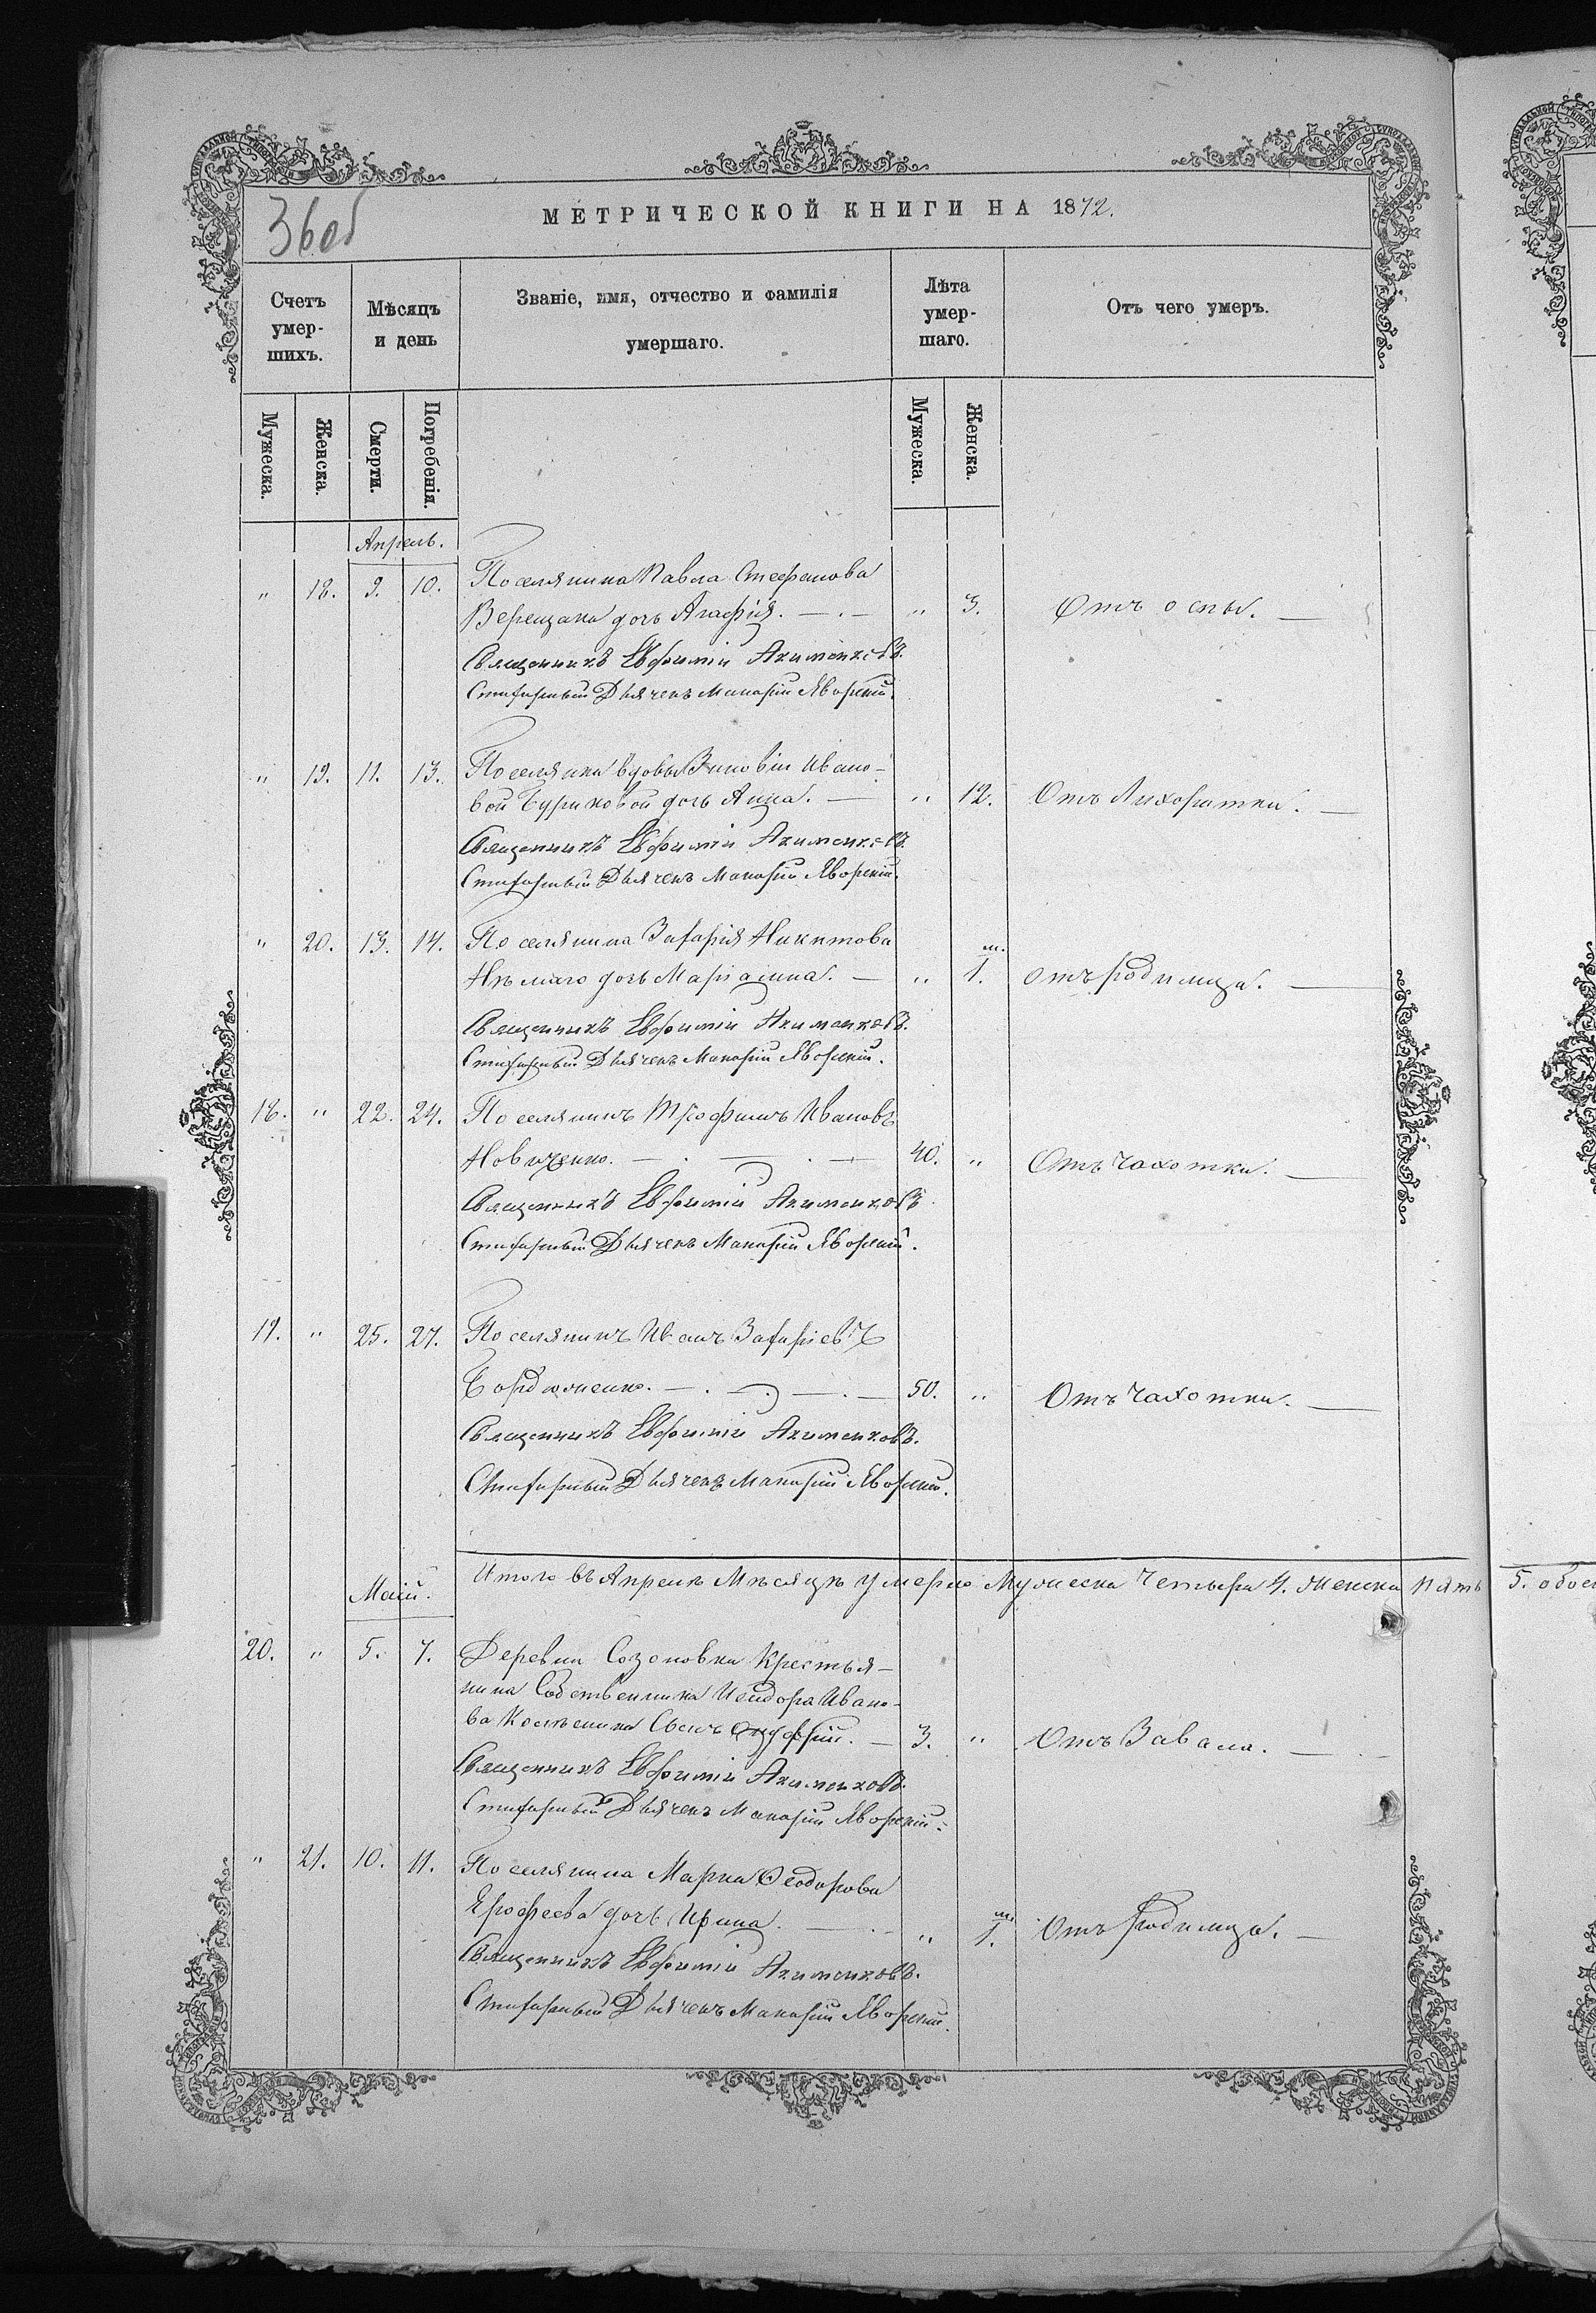 36об
МЕТРИЧЕСКОЙ КНИГИ НА 1872.
Счетъ умер-шихъ.
Мѣсяцъ и день
Званіе, имя, отчество и фамилія умершаго.
Лѣта умер-шаго.
Отъ чего умеръ.
Мужеска.
Женска.
Смерти.
Погребенія.
Мужеска.
Женска.
Апрель.
" 18. 9. 10. Поселянина Павла Стефанова
Верещака дочь Агафія. " 3. Отъ оспы.
Священникъ Евфимій Акименковъ.
Стихарный Дьячекъ Макарій Яворскій.
" 19. 11. 13. Поселянки вдовы Зиновіи Ивано-
вой Буриковой дочь Анна. " 12. Отъ Лихоратки.
Священникъ Евфимій Акименковъ.
Стихарный Дьячекъ Макарій Яворскій.
" 20. 13. 14. Поселянина Захарія Никитова
Нѣмаго дочь Маріамна. " м. 1. отъ родимца.
Священникъ Евфимій Акименковъ.
Стихарный Дьячекъ Макарій Яворскій.
18. " 22. 24. Поселянинъ Трофимъ Ивановъ
Новиченко. 40. " Отъ Чахотки.
Священникъ Евфимій Акименковъ
Стихарный Дьячекъ Макарій Яворскій.
19. " 25. 27. Поселянинъ Иванъ Захаріевъ
Бордюженко. 50. " Отъ Чахотки.
Священникъ Евфимій Акименковъ.
Стихарный Дьячекъ Макарій Яворскій.
Итого въ Апрелѣ Мѣсяцѣ умерло Мужеска Четыре 4. Женска пять 5. обое
Маій.
20. " 5. 7. Деревни Созоновки Крестья-
нина Собственника Исидора Ивано-
ва сынъ Онуфрій. 3. " Отъ Завала.
Священникъ Евфимій Акименковъ.
Стихарный Дьячекъ Макарій Яворскій.
" 21. 10. 11. Поселянина Марка Ѳеодорова
Ерофеева дочь Ирина. " м. 1. Отъ родимца.
Священникъ Евфимій Акименковъ.
Стихарный Дьячекъ Макарій Яворскій.